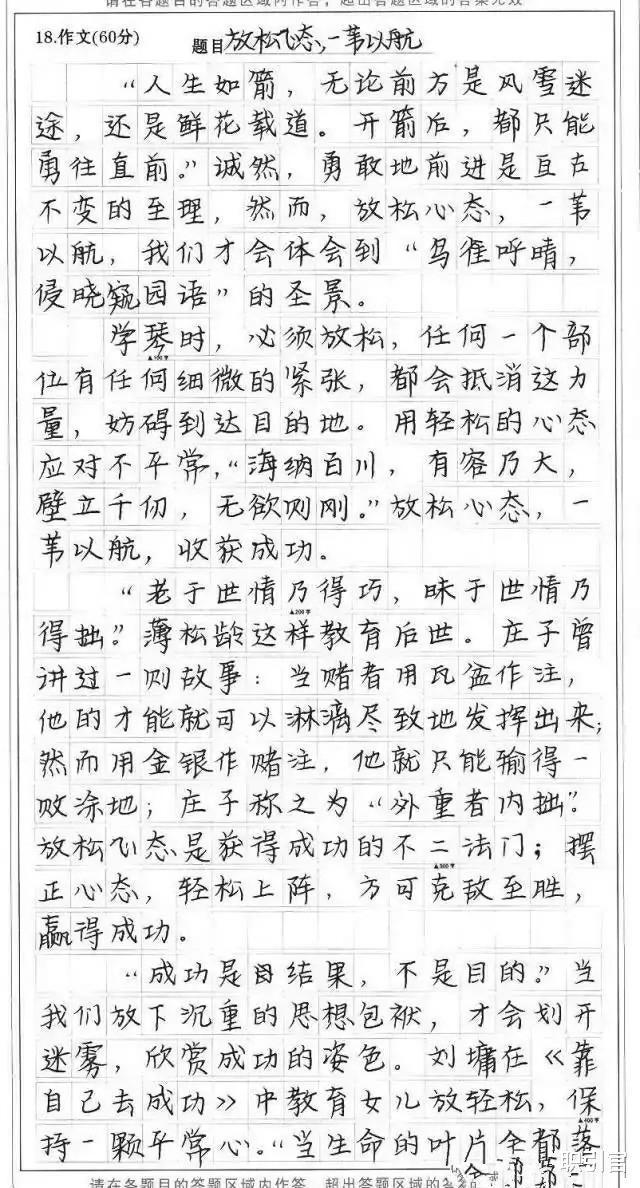 请在各题目的答题区域内作答，超出答题区域的答案无效
18.作文(60分) 题目 放松心态，一苇以航
“人生如箭，无论前方是风雪迷
途，还是鲜花载道。开箭后，都只能
勇往直前。”诚然，勇敢地前进是亘古
不变的至理，然而，放松心态，一苇
以航，我们才会体会到“鸟雀呼晴，
侵晓窥园语”的圣景。
学琴时，必须放松，任何一个部
▲100字
位有任何细微的紧张，都会抵消这力
量，妨碍到达目的地。用轻松的心态
应对不平常，“海纳百川，有容乃大，
壁立千仞，无欲则刚。”放松心态，一
苇以航，收获成功。
“老于世情乃得巧，昧于世情乃
▲200字
得拙”。薄松龄这样教育后世。庄子曾
讲过一则故事：当赌者用瓦盆作注，
他的才能就可以淋漓尽致地发挥出来；
然而用金银作赌注，他就只能输得一
败涂地；庄子称之为“外重者内拙”。
放松心态是获得成功的不二法门；摆
▲300字
正心态，轻松上阵，方可克敌至胜，
赢得成功。
“成功是结果，不是目的。”当
我们放下沉重的思想包袱，才会划开
迷雾，欣赏成功的姿色。刘墉在《靠
自己去成功》中教育女儿放轻松，保
▲400字
持一颗平常心。“当生命的叶片全都落
请在各题目的答题区域内作答，超出答题区域的
职引官